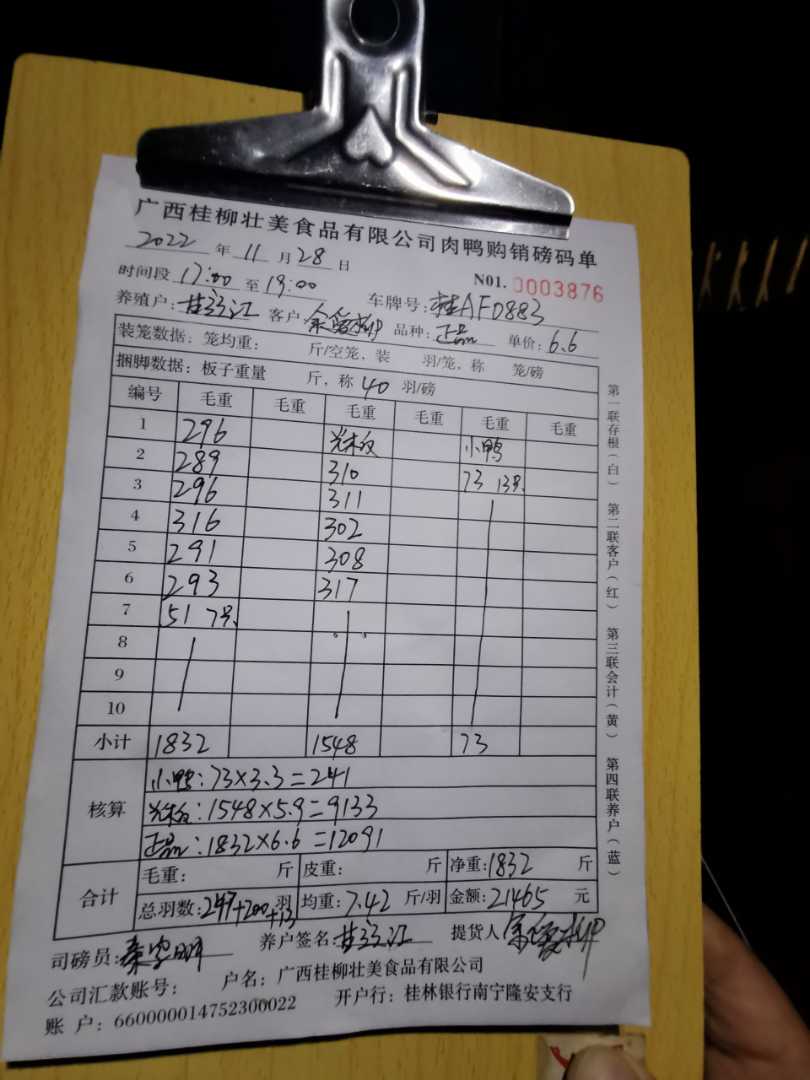 广西桂柳壮美食品有限公司肉鸭购销磅码单
2022 年 11 月 28 日
N01. 0003876
时间段 17:00 至 19:00 车牌号: 桂AF0883
养殖户: 甘 江 客户 余 柳 品种: 正品 单价: 6.6
装笼数据: 笼均重: 斤/空笼, 装 羽/笼, 称 笼/磅
捆脚数据: 板子重量 斤, 称 40 羽/磅
编号 毛重 毛重 毛重 毛重 毛重 毛重
1 296 光板 小鸭
2 289 310 73 13只
3 296 311
4 316 302
5 291 308
6 293 317
7 51 7只
8
9
10
小计 1832 1548 73
核算
小鸭: 73×3.3=241
光板: 1548×5.9=9133
正品: 1832×6.6=12091
合计
毛重: 斤 皮重: 斤 净重: 1832 斤
总羽数: 247+200+13 羽 均重: 7.42 斤/羽 金额: 21465 元
司磅员: 明 养户签名: 甘 江 提货人 余 柳
公司汇款账号: 户名: 广西桂柳壮美食品有限公司
账 户: 660000014752300022 开户行: 桂林银行南宁隆安支行
第一联存根(白) 第二联客户(红) 第三联会计(黄) 第四联养户(蓝)